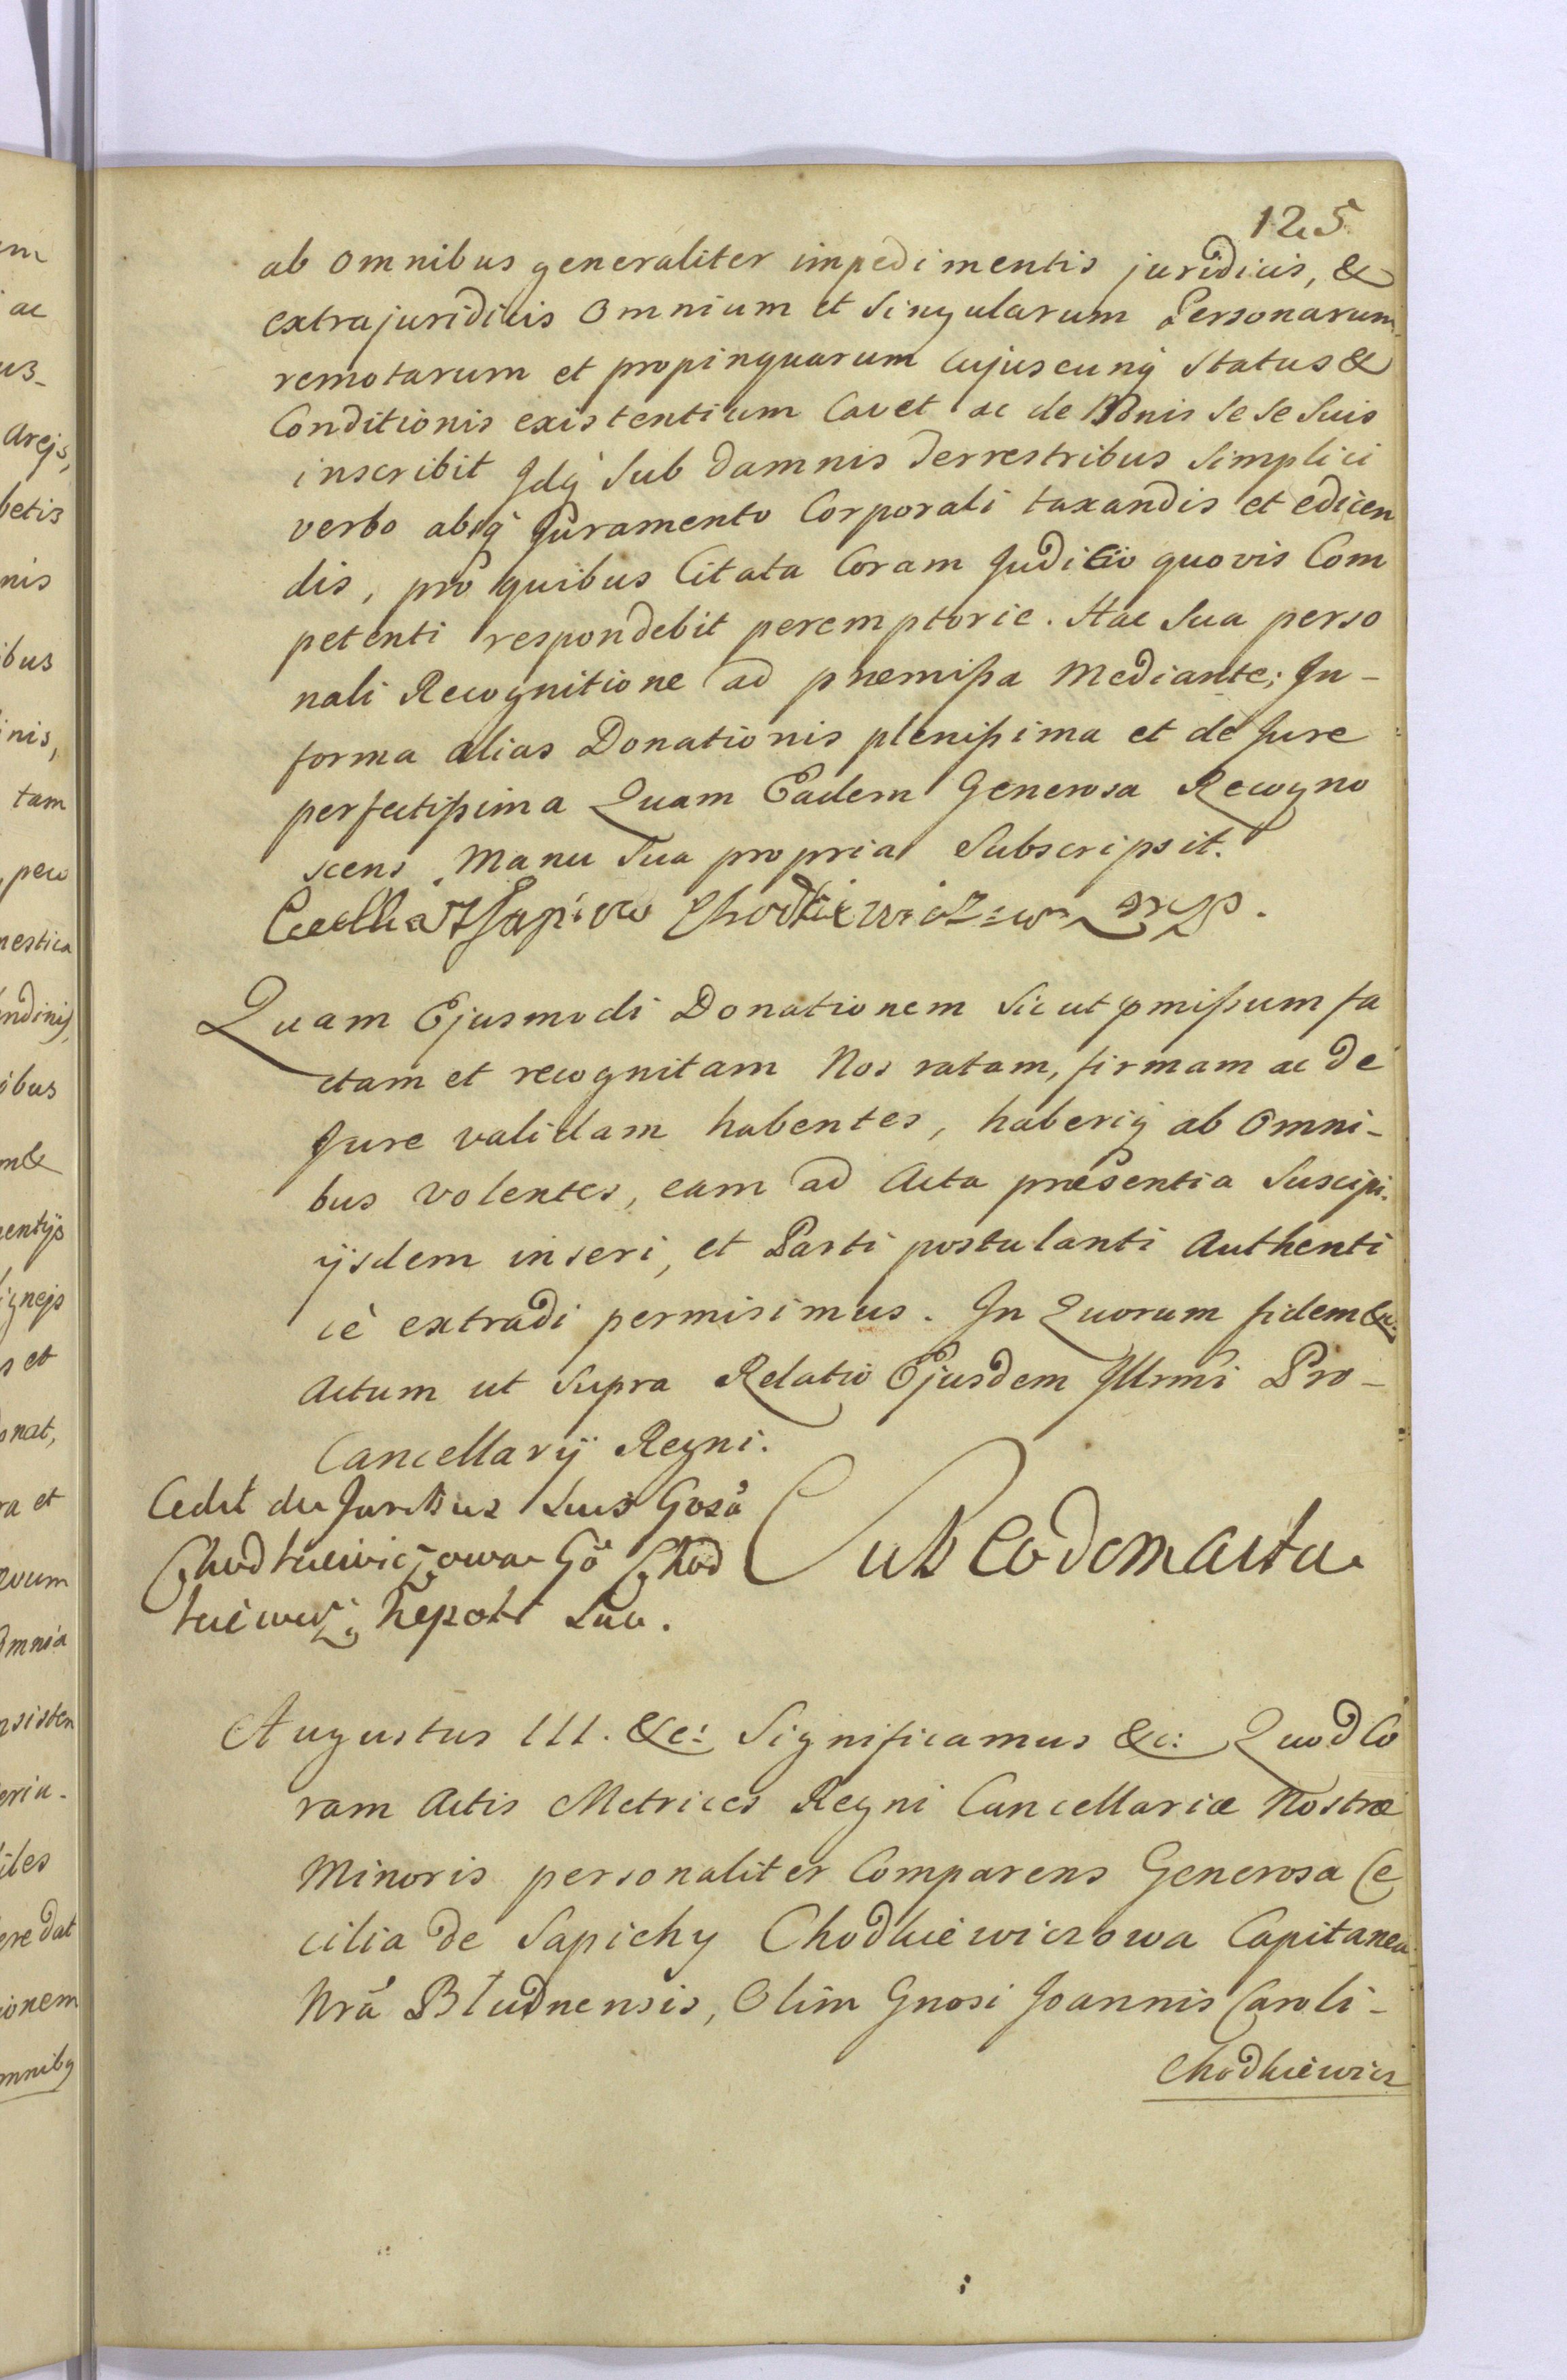 125
ab omnibus generaliter impedimentis juridicis, &
extrajuridicis omnium et singularum Personarum
remotarum et propinquarum cujuscunq́ Status &
Conditionis existentium Cavet ac de Bonis se se suis
inscribit Idq́ sub damnis terrestribus simplici
verbo absq́ Juramento Corporali taxandis et edicen
dis, pro quibus Citata Coram Juditio quovis Com
petenti respondebit peremptorie. Hac sua perso
nali Recognitione ad præmißa Mediante; In-
forma alias Donationis plenißima et de Jure
perfectißima Quam Eadem Generosa Recogno
scens Manu sua propria Subscripsit.
Cecilia z Sapiehow Chodkiewiczowa mp.
Quam Ejusmodi Donationem sicut pmißum fa
ctam et recognitam Nos ratam, firmam ac de
Jure validam habentes, haberiq́ ab omni-
bus volentes, eam ad Acta præsentia Suscipi.
ijsdem inseri, et Parti postulanti Authenti
cè extradi permisimus. In Quorum fidem &c.
Actum ut supra Relatio Ejusdem Illrmi Pro-
Cancellarij Regni.
Cedit de Juribus suis Gosa
Chodkiewiczowa Go Chod
kiewicz Nepoti suo.
Sub Eodem Actu
Augustus III. &c: Significamus &c: Quod Co
ram Actis Metrices Regni Cancellariæ Nostræ
Minoris personaliter Comparens Generosa Ce
cilia de Sapiehy Chodkiewiczowa Capitanea
Nrã Błudnensis, Olim Gnosi Joannis Caroli-
Chodkiewicz